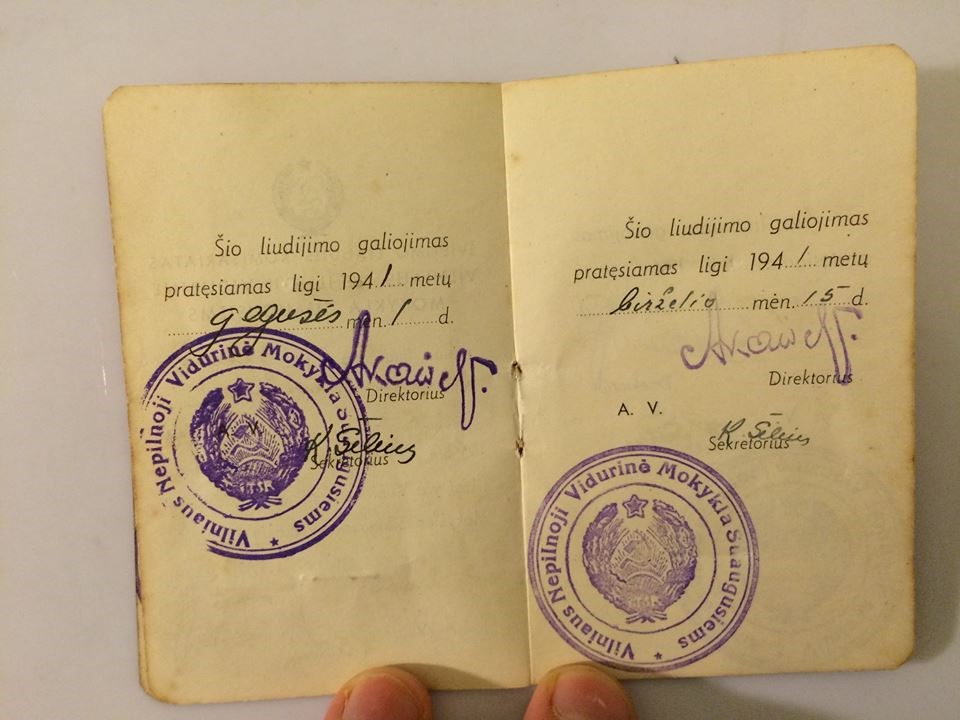 Šio liudijimo galiojimas
pratęsiamas ligi 1941 metų
gegužės mėn. 1 d.
Direktorius
A. V.
K. Šilius
Sekretorius
Vilniaus Nepilnoji Vidurinė Mokykla Suaugusiems ★
Šio liudijimo galiojimas
pratęsiamas ligi 1941 metų
birželio mėn. 15 d.
Direktorius
A. V.
K. Šilius
Sekretorius
Vilniaus Nepilnoji Vidurinė Mokykla Suaugusiems ★